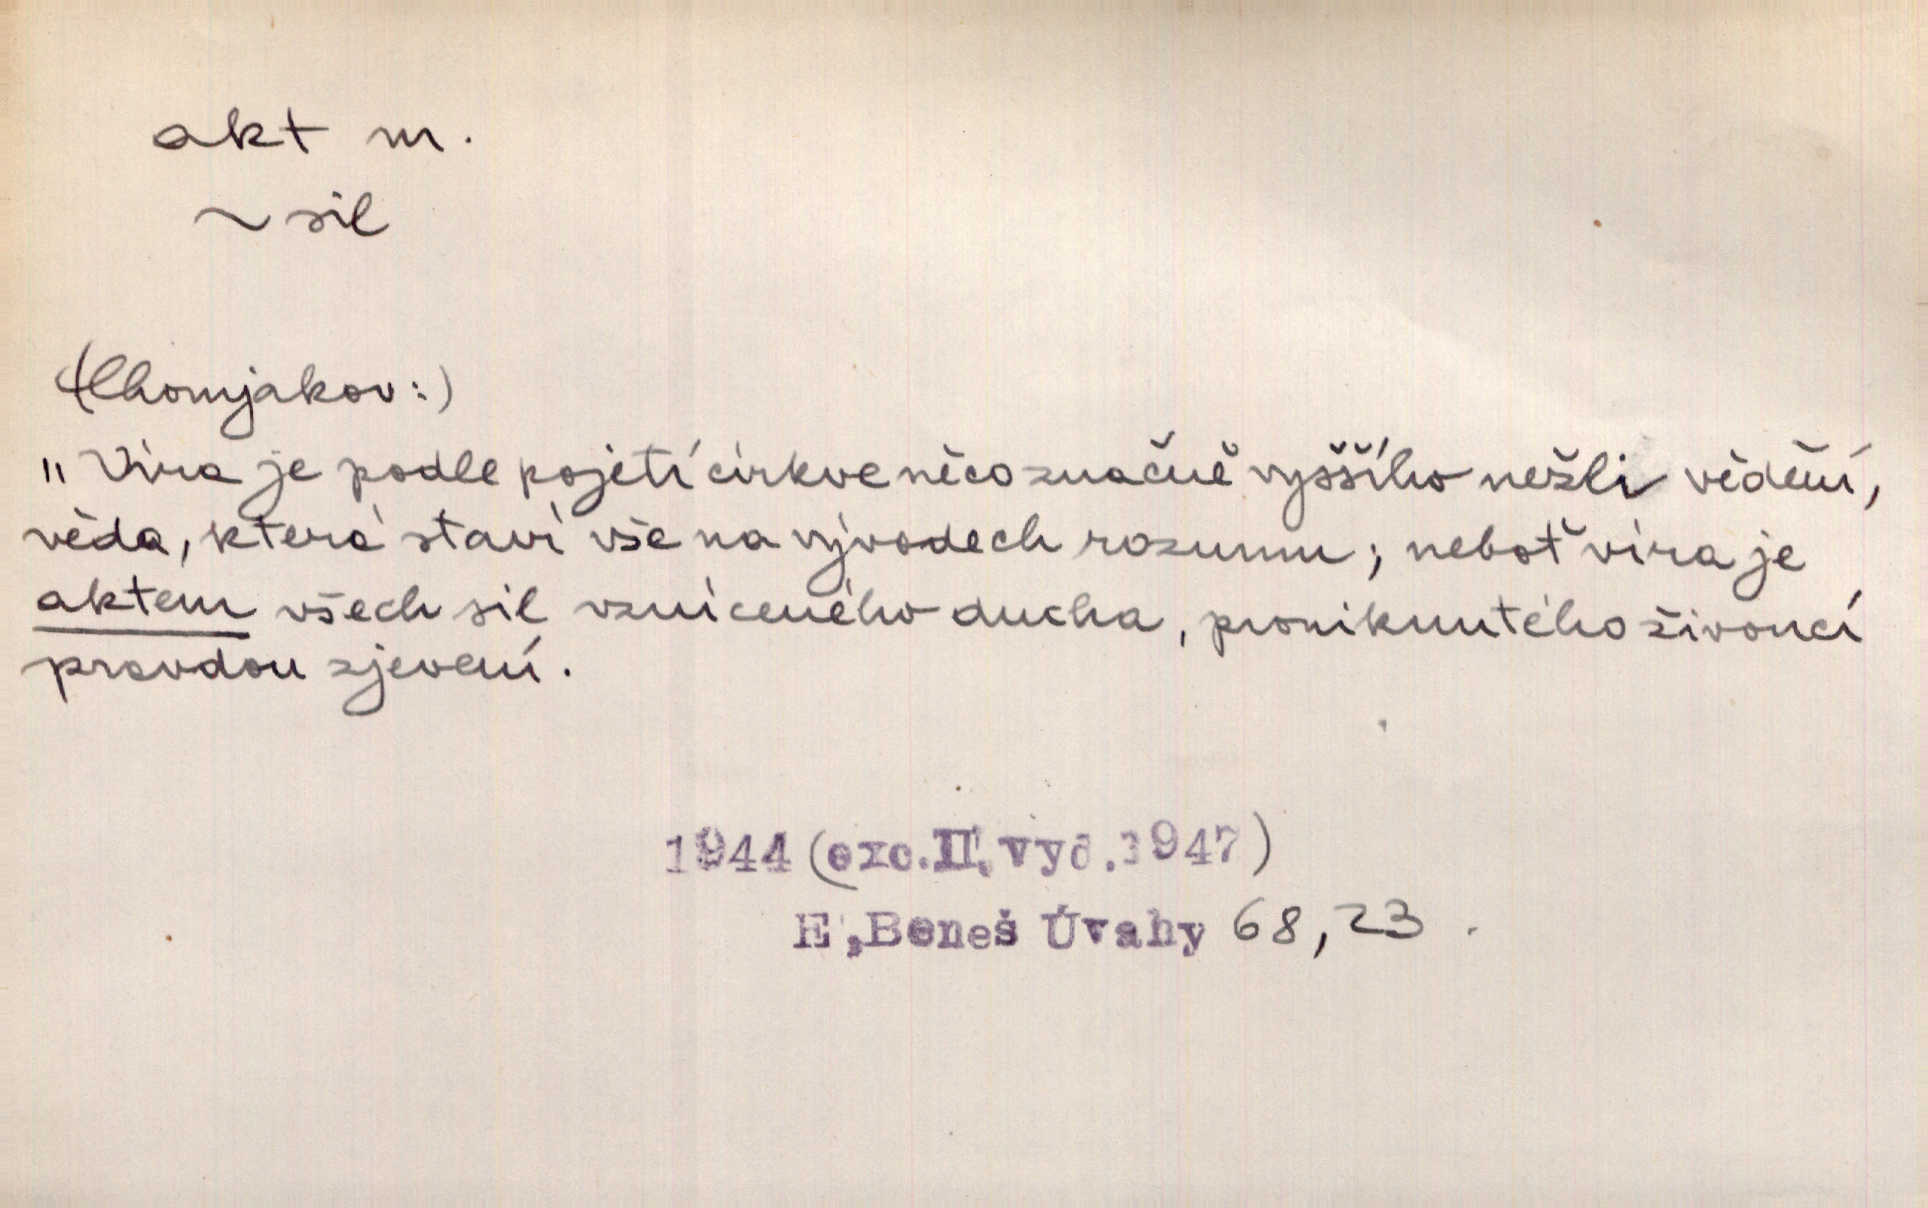 akt m.
~ sil
(Chomjakov:)
„Víra je podle pojetí církve něco značně vyššího nežli vědění,
věda, která staví vše na vývodech rozumu; neboť víra je
aktem všech sil vzníceného ducha, proniknutého živoucí
pravdou zjevení.
1944 (exc. II. vyd. 1947)
E. Beneš Úvahy 68, 23.